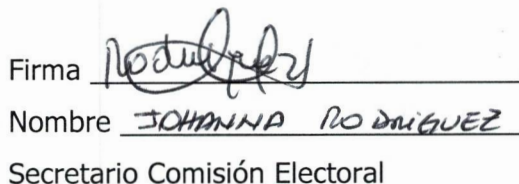 Firma
Nombre JOHANNA RODRIGUEZ
Secretario Comisión Electoral